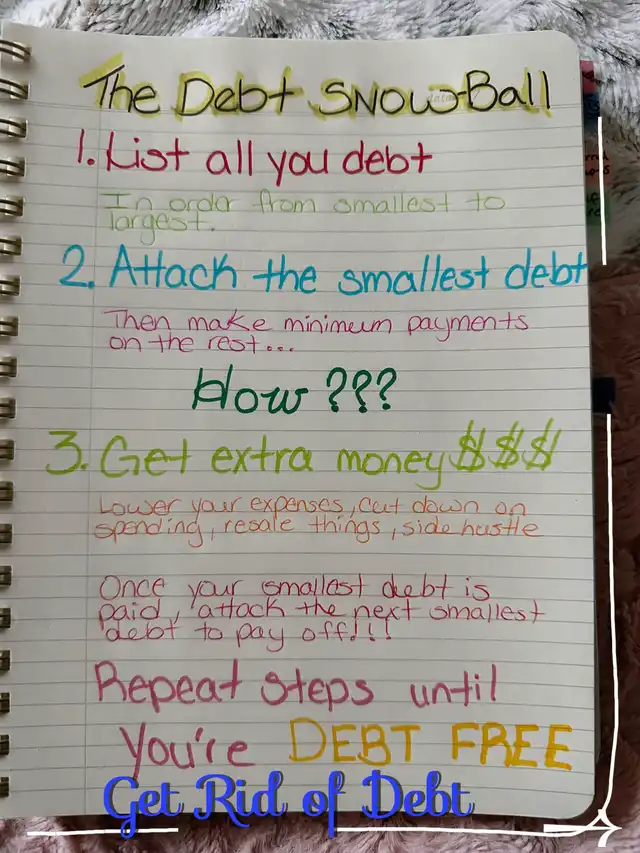 The Debt Snow-Ball
1. List all you debt
In order from smallest to
largest.
2. Attack the smallest debt
Then make minimum payments
on the rest...
How ???
3. Get extra money $$$
Lower your expenses, cut down on
spending, resale things, side hustle
Once your smallest debt is
paid, attack the next smallest
debt to pay off!!!
Repeat steps until
You're DEBT FREE
Get Rid of Debt